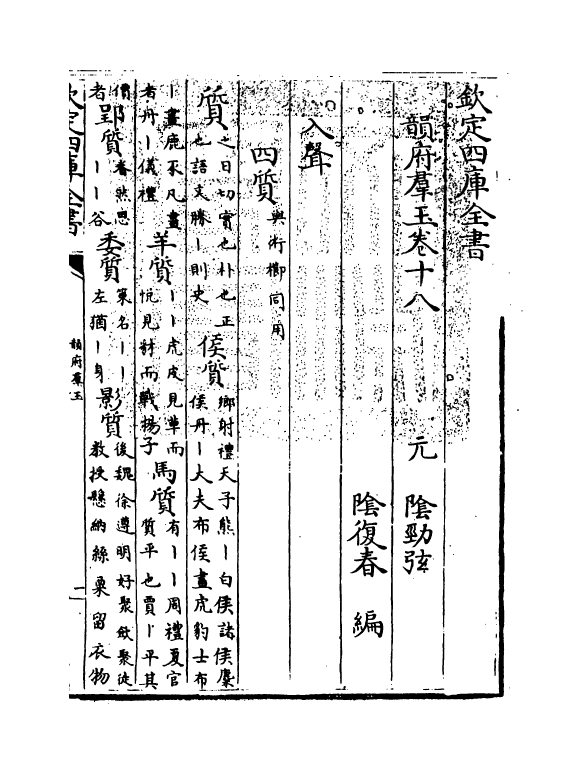 欽定四庫全書
韻府羣玉卷十八
元 陰勁弦
陰復春 編
入聲
四質 與術櫛同用
質 之日切實也朴也正也語文勝丨則史 侯質 鄉射禮天子熊丨白侯諸侯麋侯丹丨大夫布侯畫虎豹士布
丨畫鹿豕凡畫者丹丨儀禮 羊質 丨丨虎皮見草而悦見豺而戰揚子 馬質 有丨丨周禮夏官質平也賈丨平其
者 郢質 丨丨谷 委質 策名丨丨左猶丨身 影質 後魏徐遵明好聚斂聚徒教授懸納絲粟留衣物
欽定四庫全書
韻府羣玉
一